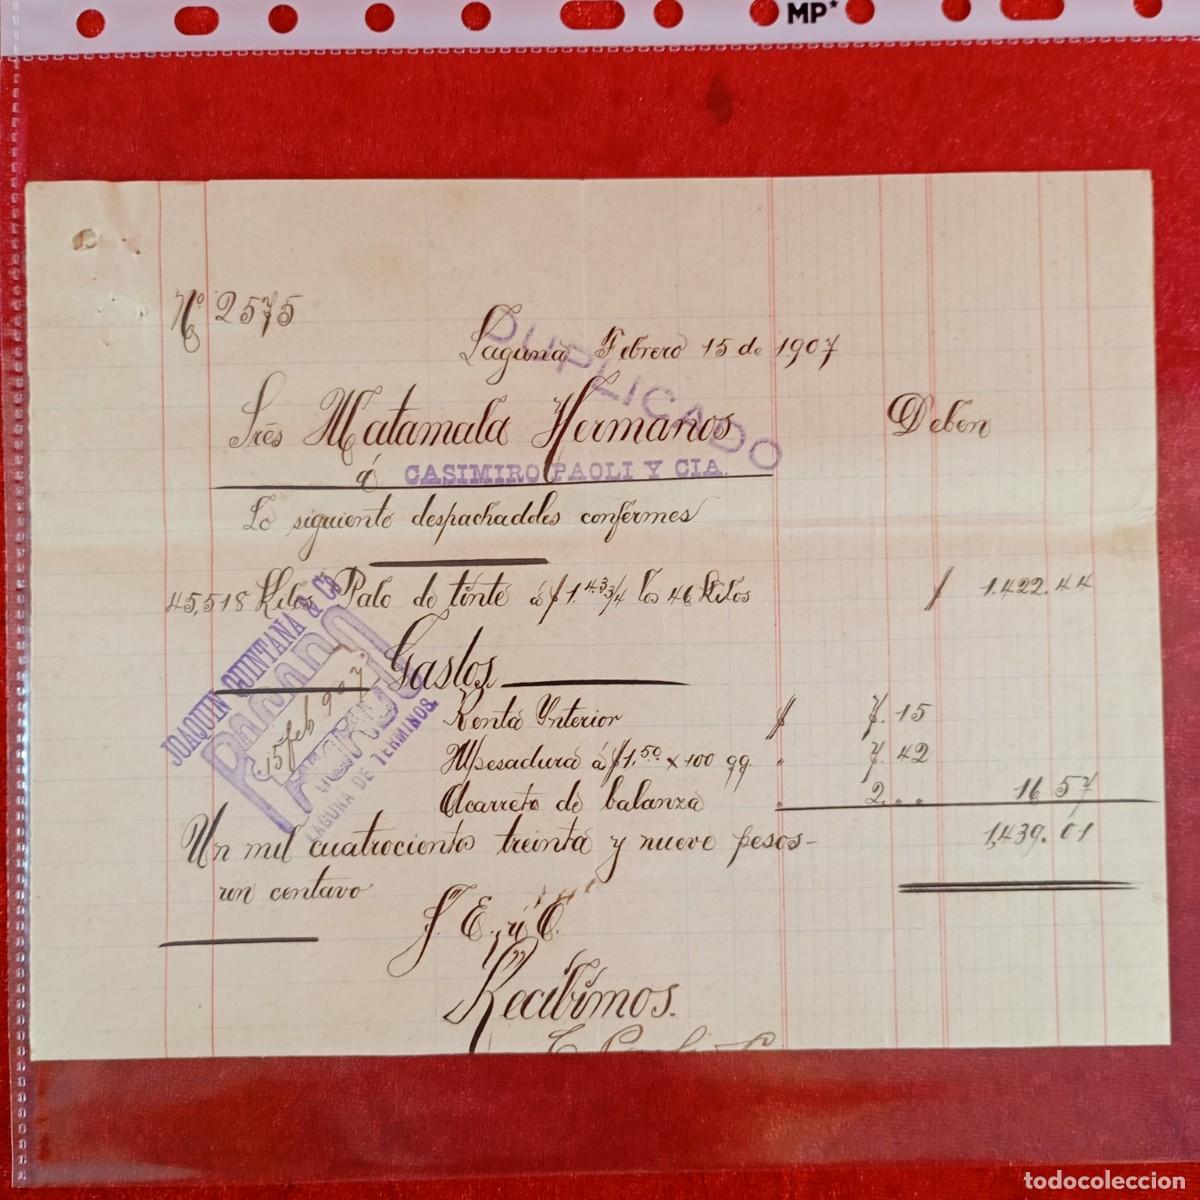 MP*
Nº 2575
DUPLICADO
Laguna Febrero 15 de 1907
Sres Matamala Hermanos Deben
á CASIMIRO PAOLI Y CIA.
Lo siguiente despachadoles confermes
45,518 Kilos Palo de tinte á $1.43 3/4 los 46 Kilos $ 1.422.44
JOAQUIN QUINTANA & Cº
PAGADO
15 feb 907
LAGUNA DE TERMINOS.
Gastos
Renta Ynterior $ 7.15
pesadura á $1,50 x 100 qq " 7.42
Acarreto de balanza " 2 " " 16 57
Un mil cuatrocientos treinta y nueve pesos - 1,439.01
un centavo
S. E. y O.
Recibimos.
todocoleccion